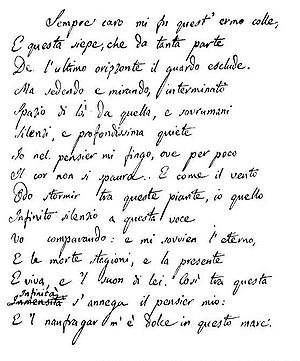 Sempre caro mi fu quest'ermo colle,
E questa siepe, che da tanta parte
De l'ultimo orizzonte il guardo esclude.
Ma sedendo e mirando, interminato
Spazio di là da quella, e sovrumani
Silenzi, e profondissima quiete
Io nel pensier mi fingo, ove per poco
Il cor non si spaura. E come il vento
Odo stormir tra queste piante, io quello
Infinito silenzio a questa voce
Vo comparando: e mi sovvien l'eterno,
E le morte stagioni, e la presente
E viva, e 'l suon di lei. Così tra questa
Infinità
Immensità s'annega il pensier mio:
E 'l naufragar m'è dolce in questo mare.